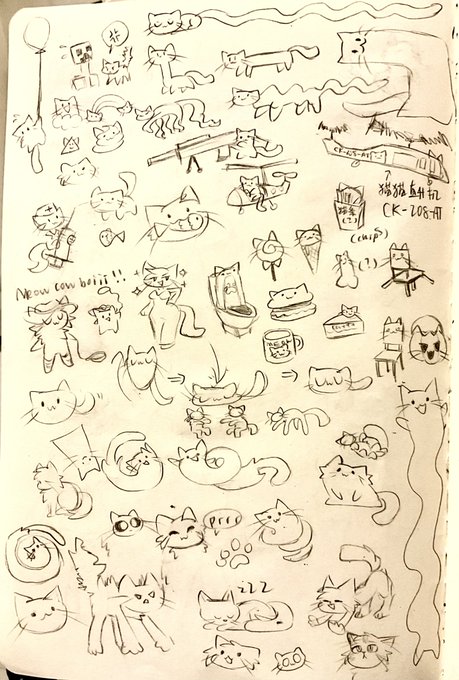 CK-208-AT
猫猫直升机
CK-208-AT
(chips)
(?)
Meow cow boiii!!
MEOW
prrr
zzz